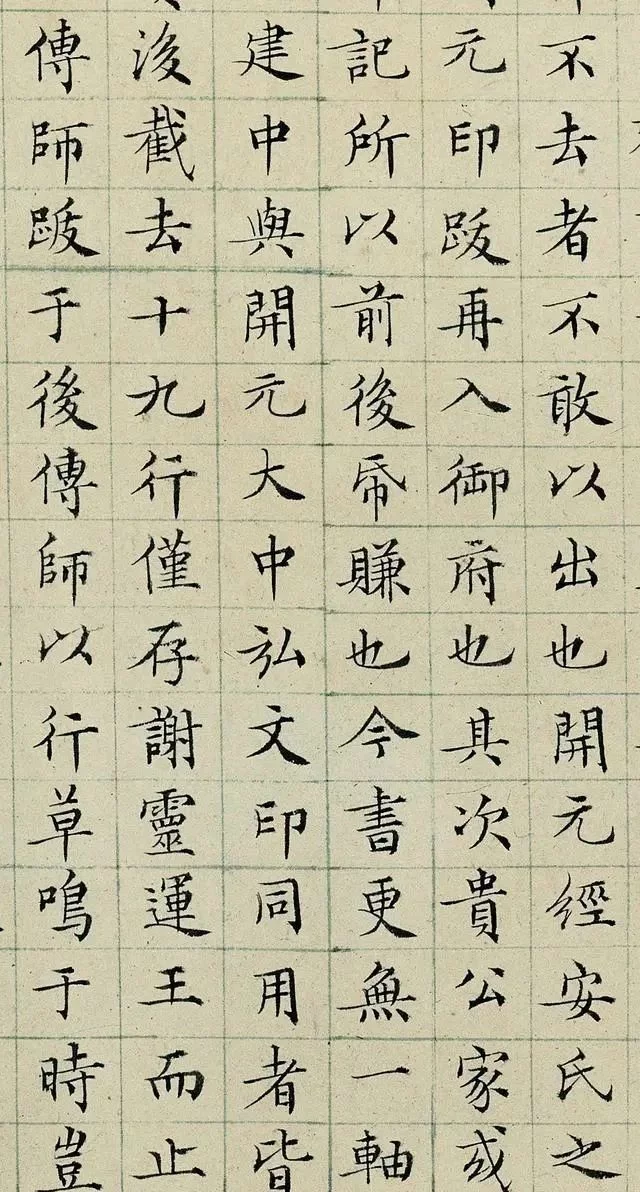 不去者不敢以出也開元經安氏之
元印跋再入御府也其次貴公家或
記所以前後帋賺也今書更無一軸
建中與開元大中弘文印同用者皆
後截去十九行僅存謝靈運王而止
傳師跋于後傳師以行草鳴于時豈